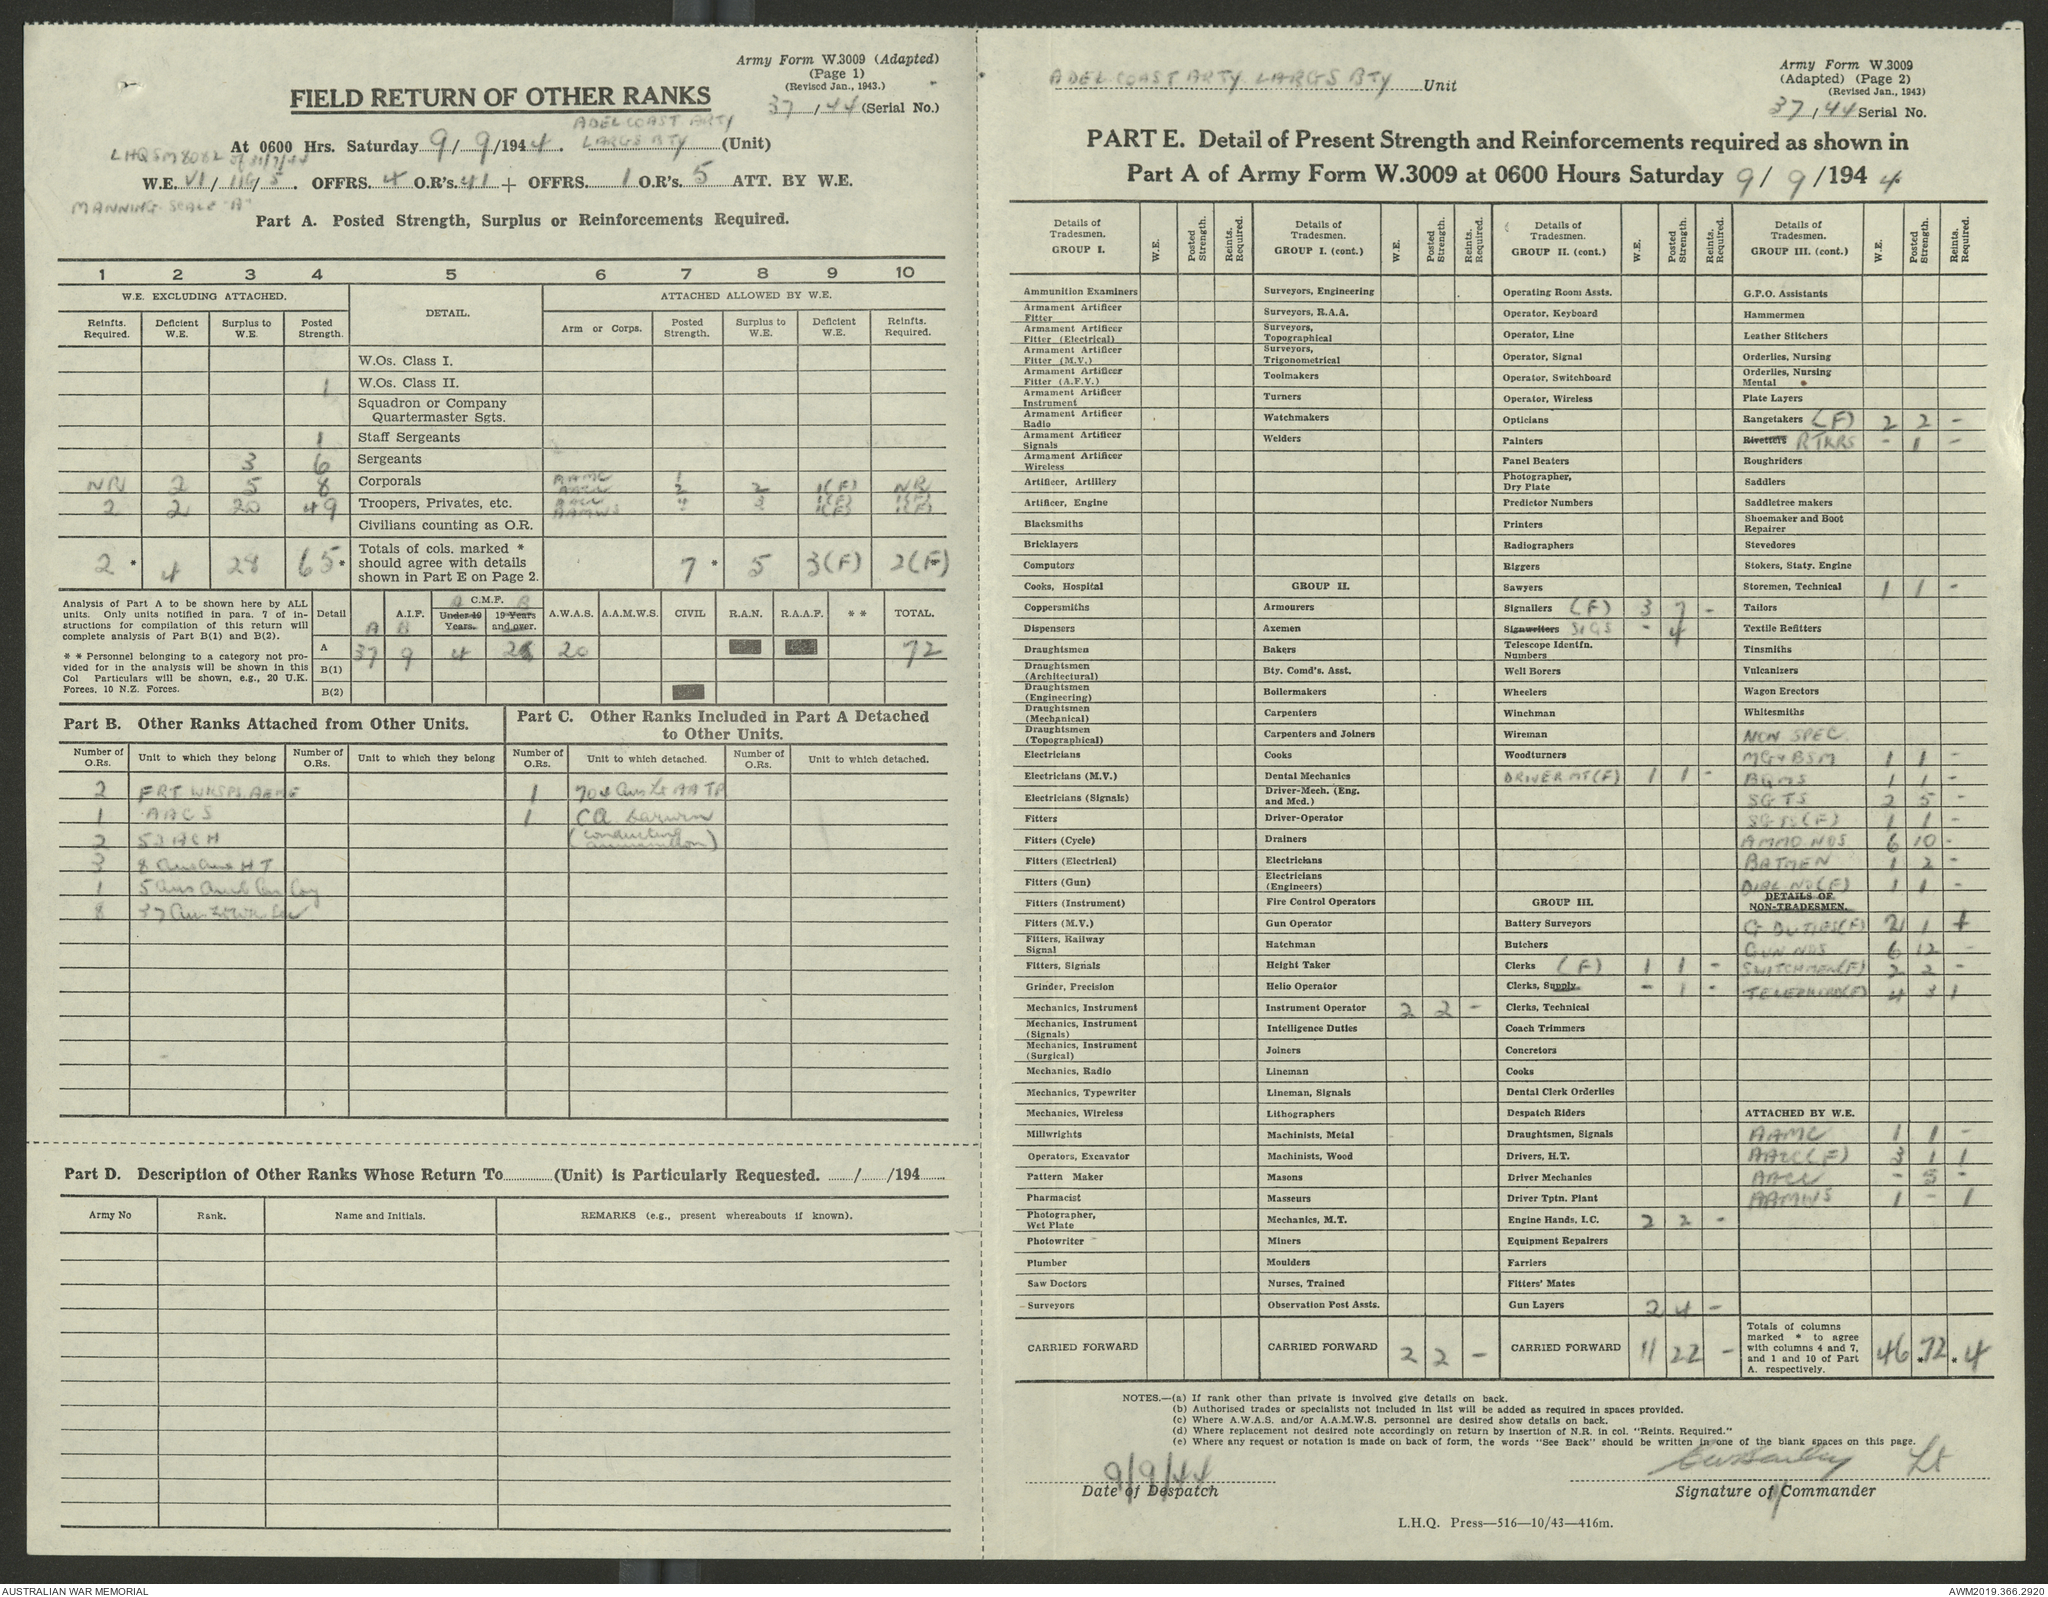 Army Form W.3009 (Adapted)
(Page 1)
(Revised Jan., 1943.)
FIELD RETURN OF OTHER RANKS
37/44 (Serial No.)
ADEL COAST ARTY
At 0600 Hrs. Saturday 9/9/1944. LARGS BTY (Unit)
LHQ SM8082
W.E. VI/116/5. OFFRS. 4 O.R's. 41 + OFFRS. 1 O.R's. 5 ATT. BY W.E.
MANNING SCALE "A"
Part A. Posted Strength, Surplus or Reinforcements Required.
1 2 3 4 5 6 7 8 9 10
W.E. EXCLUDING ATTACHED. DETAIL. ATTACHED ALLOWED BY W.E.
Reinfts. Required. Deficient W.E. Surplus to W.E. Posted Strength. Arm or Corps. Posted Strength. Surplus to W.E. Deficient W.E. Reinfts. Required.
W.Os. Class I.
1 W.Os. Class II.
Squadron or Company Quartermaster Sgts.
1 Staff Sergeants
3 6 Sergeants
NR 2 5 8 Corporals AAMC 1
AACC 2 2 1(F) NR
2 2 20 49 Troopers, Privates, etc. AACC 4 3 1(F) 1(F)
AAMWS - 1(F) 1(F)
Civilians counting as O.R.
2 * 4 28 65 * Totals of cols. marked * should agree with details shown in Part E on Page 2. 7 * 5 3(F) 2(F)
Analysis of Part A to be shown here by ALL units. Only units notified in para. 7 of instructions for compilation of this return will complete analysis of Part B(1) and B(2).
* * Personnel belonging to a category not provided for in the analysis will be shown in this Col Particulars will be shown, e.g., 20 U.K. Forces, 10 N.Z. Forces.
Detail A.I.F. C.M.F. A.W.A.S. A.A.M.W.S. CIVIL R.A.N. R.A.A.F. * * TOTAL.
A B A B
Under 19 Years. 19 Years and over.
A 37 9 4 20 72
B(1)
B(2)
Part B. Other Ranks Attached from Other Units.
Number of O.Rs. Unit to which they belong Number of O.Rs. Unit to which they belong
2 FRT WKSPS AEME
1 AACS
2 53 ACH
3
1 5 Coy
8 37
Part C. Other Ranks Included in Part A Detached to Other Units.
Number of O.Rs. Unit to which detached. Number of O.Rs. Unit to which detached.
1
1 CA Darwin
(conducting
ammunition)
Part D. Description of Other Ranks Whose Return To............(Unit) is Particularly Requested. ....../....../194......
Army No Rank. Name and Initials. REMARKS (e.g., present whereabouts if known).
ADEL COAST ARTY LARGS BTY Unit
Army Form W.3009
(Adapted) (Page 2)
(Revised Jan., 1943)
37/44 Serial No.
PART E. Detail of Present Strength and Reinforcements required as shown in
Part A of Army Form W.3009 at 0600 Hours Saturday 9/9/1944
Details of Tradesmen. GROUP I. W.E. Posted Strength. Reints. Required.
Ammunition Examiners
Armament Artificer Fitter
Armament Artificer Fitter (Electrical)
Armament Artificer Fitter (M.V.)
Armament Artificer Fitter (A.F.V.)
Armament Artificer Instrument
Armament Artificer Radio
Armament Artificer Signals
Armament Artificer Wireless
Artificer, Artillery
Artificer, Engine
Blacksmiths
Bricklayers
Computors
Cooks, Hospital
Coppersmiths
Dispensers
Draughtsmen
Draughtsmen (Architectural)
Draughtsmen (Engineering)
Draughtsmen (Mechanical)
Draughtsmen (Topographical)
Electricians
Electricians (M.V.)
Electricians (Signals)
Fitters
Fitters (Cycle)
Fitters (Electrical)
Fitters (Gun)
Fitters (Instrument)
Fitters (M.V.)
Fitters, Railway Signal
Fitters, Signals
Grinder, Precision
Mechanics, Instrument
Mechanics, Instrument (Signals)
Mechanics, Instrument (Surgical)
Mechanics, Radio
Mechanics, Typewriter
Mechanics, Wireless
Millwrights
Operators, Excavator
Pattern Maker
Pharmacist
Photographer, Wet Plate
Photowriter
Plumber
Saw Doctors
Surveyors
CARRIED FORWARD
Details of Tradesmen. GROUP I. (cont.) W.E. Posted Strength. Reints. Required.
Surveyors, Engineering
Surveyors, R.A.A.
Surveyors, Topographical
Surveyors, Trigonometrical
Toolmakers
Turners
Watchmakers
Welders
GROUP II.
Armourers
Axemen
Bakers
Bty. Comd's. Asst.
Boilermakers
Carpenters
Carpenters and Joiners
Cooks
Dental Mechanics
Driver-Mech. (Eng. and Med.)
Driver-Operator
Drainers
Electricians
Electricians (Engineers)
Fire Control Operators
Gun Operator
Hatchman
Height Taker
Helio Operator
Instrument Operator 2 2 -
Intelligence Duties
Joiners
Lineman
Lineman, Signals
Lithographers
Machinists, Metal
Machinists, Wood
Masons
Masseurs
Mechanics, M.T.
Miners
Moulders
Nurses, Trained
Observation Post Assts.
CARRIED FORWARD 2 2 -
Details of Tradesmen. GROUP II. (cont.) W.E. Posted Strength. Reints. Required.
Operating Room Assts.
Operator, Keyboard
Operator, Line
Operator, Signal
Operator, Switchboard
Operator, Wireless
Opticians
Painters
Panel Beaters
Photographer, Dry Plate
Predictor Numbers
Printers
Radiographers
Riggers
Sawyers
Signallers (F) 3 7 -
Signwriters SIGS - 4
Telescope Identfn. Numbers
Well Borers
Wheelers
Winchman
Wireman
Woodturners
DRIVER MT (F) 1 1 -
GROUP III.
Battery Surveyors
Butchers
Clerks (F) 1 1 -
Clerks, Supply - 1 -
Clerks, Technical
Coach Trimmers
Concretors
Cooks
Dental Clerk Orderlies
Despatch Riders
Draughtsmen, Signals
Drivers, H.T.
Driver Mechanics
Driver Tptn. Plant
Engine Hands, I.C. 2 2 -
Equipment Repairers
Farriers
Fitters' Mates
Gun Layers 2 4 -
CARRIED FORWARD 11 22 -
Details of Tradesmen. GROUP III. (cont.) W.E. Posted Strength. Reints. Required.
G.P.O. Assistants
Hammermen
Leather Stitchers
Orderlies, Nursing
Orderlies, Nursing Mental
Plate Layers
Rangetakers (F) 2 2 -
Rivetters RTKRS - 1 -
Roughriders
Saddlers
Saddletree makers
Shoemaker and Boot Repairer
Stevedores
Stokers, Staty. Engine
Storemen, Technical 1 1 -
Tailors
Textile Refitters
Tinsmiths
Vulcanizers
Wagon Erectors
Whitesmiths
NON SPEC.
MG & BSM 1 1 -
BQMS 1 1 -
SGTS 2 5 -
SGTS (F) 1 1 -
AMMO NOS 6 10 -
BATMEN 1 2 -
DIAL NO (F) 1 1 -
DETAILS OF NON-TRADESMEN.
G DUTIES (F) 2 1 1
GUN NOS 6 12 -
SWITCHMEN (F) 2 2 -
TELEPHON(F) 4 3 1
ATTACHED BY W.E.
AAMC 1 1 -
AACC (F) 3 1 1
AACC - 5 -
AAMWS 1 - 1
Totals of columns marked * to agree with columns 4 and 7, and 1 and 10 of Part A. respectively. 46 * 72 * 4
NOTES.—(a) If rank other than private is involved give details on back.
(b) Authorised trades or specialists not included in list will be added as required in spaces provided.
(c) Where A.W.A.S. and/or A.A.M.W.S. personnel are desired show details on back.
(d) Where replacement not desired note accordingly on return by insertion of N.R. in col. "Reints. Required."
(e) Where any request or notation is made on back of form, the words "See Back" should be written in one of the blank spaces on this page.
9/9/44
Date of Despatch
Lt
Signature of Commander
L.H.Q. Press—516—10/43—416m.
AUSTRALIAN WAR MEMORIAL
AWM2019.366.2920